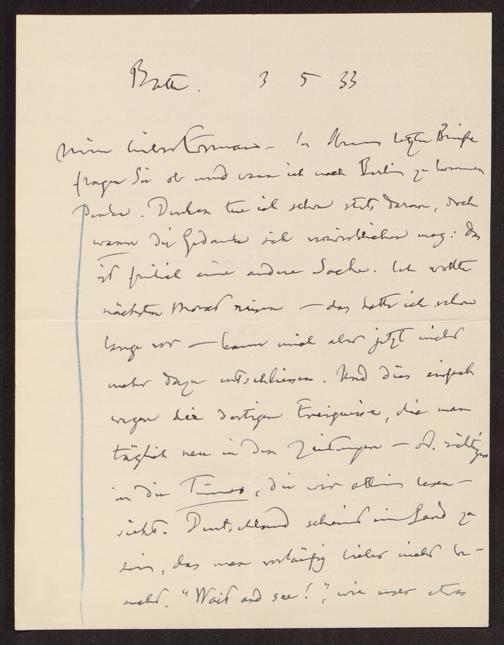 Bath. 3 5 33
Mein lieber Cormann - In Ihrem letzten Briefe
fragen Sie ob und wann ich nach Berlin zu kommen
denke. Denken tue ich schon stets daran, doch
wann der Gedanke sich verwirklichen mag: das
ist freilich eine andere Sache. Ich wollte
nächsten Monat reisen - das hatte ich schon
lange vor - kann mich aber jetzt nicht
mehr dazu entschliessen. Und dies einfach
wegen der dortigen Ereignisse, die man
täglich neu in den Zeitungen - od. richtiger
in der Times, die wir allein lesen -
sieht. Deutschland scheint ein Land zu
sein, das man vorläufig lieber nicht be-
sucht. "Wait and see!", wie unser etwas